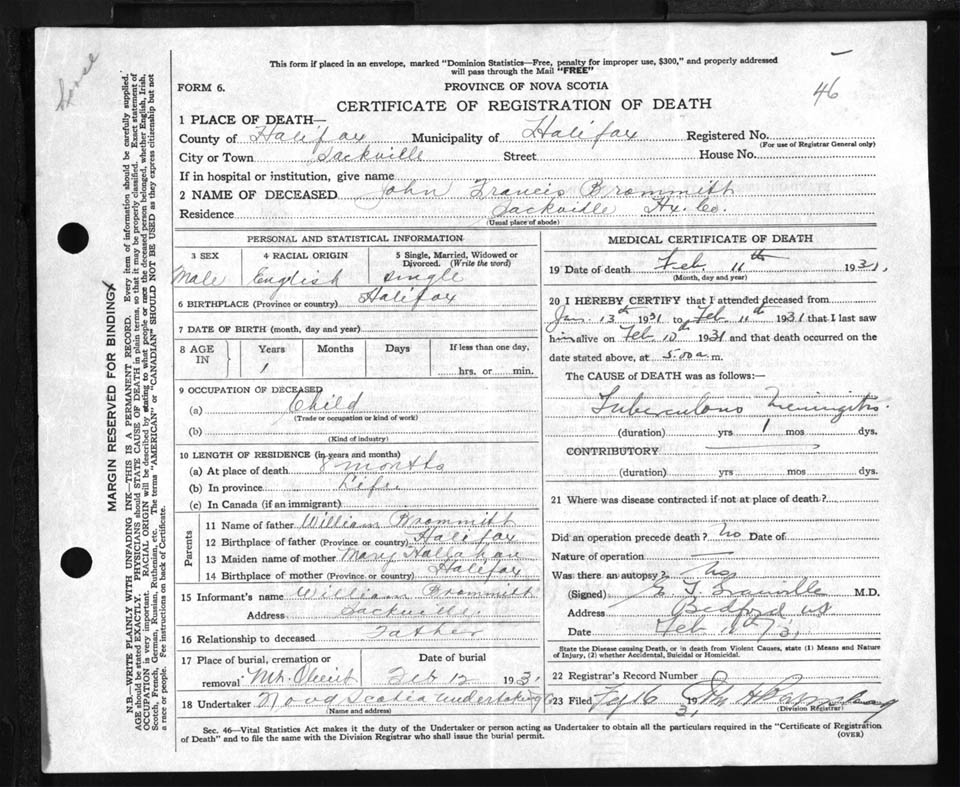 This form if placed in an envelope, marked "Dominion Statistics—Free, penalty for improper use, $300," and properly addressed
will pass through the Mail "FREE"
46
FORM 6.
PROVINCE OF NOVA SCOTIA
CERTIFICATE OF REGISTRATION OF DEATH
1 PLACE OF DEATH—
County of Halifax Municipality of Halifax Registered No.
(For use of Registrar General only)
City or Town Sackville Street House No.
If in hospital or institution, give name
2 NAME OF DECEASED John Francis Brommitt
Residence Sackville Hx. Co.
(Usual place of abode)
PERSONAL AND STATISTICAL INFORMATION
3 SEX 4 RACIAL ORIGIN 5 Single, Married, Widowed or Divorced. (Write the word)
Male English Single
6 BIRTHPLACE (Province or country) Halifax
7 DATE OF BIRTH (month, day and year)
8 AGE IN Years Months Days If less than one day,
1 hrs. or min.
9 OCCUPATION OF DECEASED
(a) Child
(Trade or occupation or kind of work)
(b)
(Kind of industry)
10 LENGTH OF RESIDENCE (in years and months)
(a) At place of death 8 months
(b) In province Life
(c) In Canada (if an immigrant)
Parents
11 Name of father William Brommitt
12 Birthplace of father (Province or country) Halifax
13 Maiden name of mother Mary Hallahan
14 Birthplace of mother (Province or country) Halifax
15 Informant's name William Brommitt
Address Sackville
16 Relationship to deceased Father
17 Place of burial, cremation or removal Mt. Olivet
Date of burial Feb 12 1931
18 Undertaker Nova Scotia Undertaking Co
(Name and address)
MEDICAL CERTIFICATE OF DEATH
19 Date of death Feb. 11th 1931,
(Month, day and year)
20 I HEREBY CERTIFY that I attended deceased from
Jan. 13th 1931 to Feb 11th 1931 that I last saw
him alive on Feb 10th 1931 and that death occurred on the
date stated above, at 5.00 a.m.
The CAUSE of DEATH was as follows:—
Tuberculous Meningitis.
(duration) yrs 1 mos dys.
CONTRIBUTORY
(duration) yrs. mos. dys.
21 Where was disease contracted if not at place of death?
Did an operation precede death? No Date of
Nature of operation —
Was there an autopsy? No
(Signed) M.D.
Address Bedford NS
Date Feb 11th/31
State the Disease causing Death, or in death from Violent Causes, state (1) Means and Nature
of Injury, (2) whether Accidental, Suicidal or Homicidal.
22 Registrar's Record Number
23 Filed 16 1931
(Division Registrar)
Sec. 46—Vital Statistics Act makes it the duty of the Undertaker or person acting as Undertaker to obtain all the particulars required in the "Certificate of Registration
of Death" and to file the same with the Division Registrar who shall issue the burial permit.
(OVER)
MARGIN RESERVED FOR BINDING
N.B.—WRITE PLAINLY WITH UNFADING INK—THIS IS A PERMANENT RECORD. Every item of information should be carefully supplied.
AGE should be stated EXACTLY. PHYSICIANS should STATE CAUSE OF DEATH in plain terms, so that it may be properly classified. Exact statement of
OCCUPATION is very important. RACIAL ORIGIN will be described by stating to what people or race the deceased person belonged, whether English, Irish,
Scotch, French, German, Russian, Ruthenian, etc. The terms "AMERICAN" or "CANADIAN" SHOULD NOT BE USED as they express citizenship but not
a race or people. Fee instructions on back of Certificate.